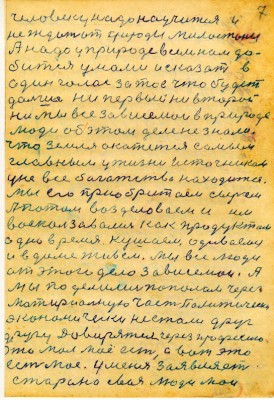 7
человеку надо научится и
не ждать от природы милостыни
А надо у природе всем нам до-
бится умом и сказать в
один голас за то что будет
дальше ни первый ни второй
ни мы все зависемов природе
люди об этом деле не знали
что земля окажется самым
главным у жизни источником
у не все багатства находится.
мы его приобритаем сырём
А потом возделоваем и им
как продуктом
одно время. Кушаем, одеваемся
и в доме живем. Мы все люди
от этого дело зависемои. А
мы поделили пополам через
матириалную часть Политически
экономически нестали друг
другу доверятся через профессию.
это мол моё есть, а вот это
есть мое. у меня заявляет
старано своя люди мои